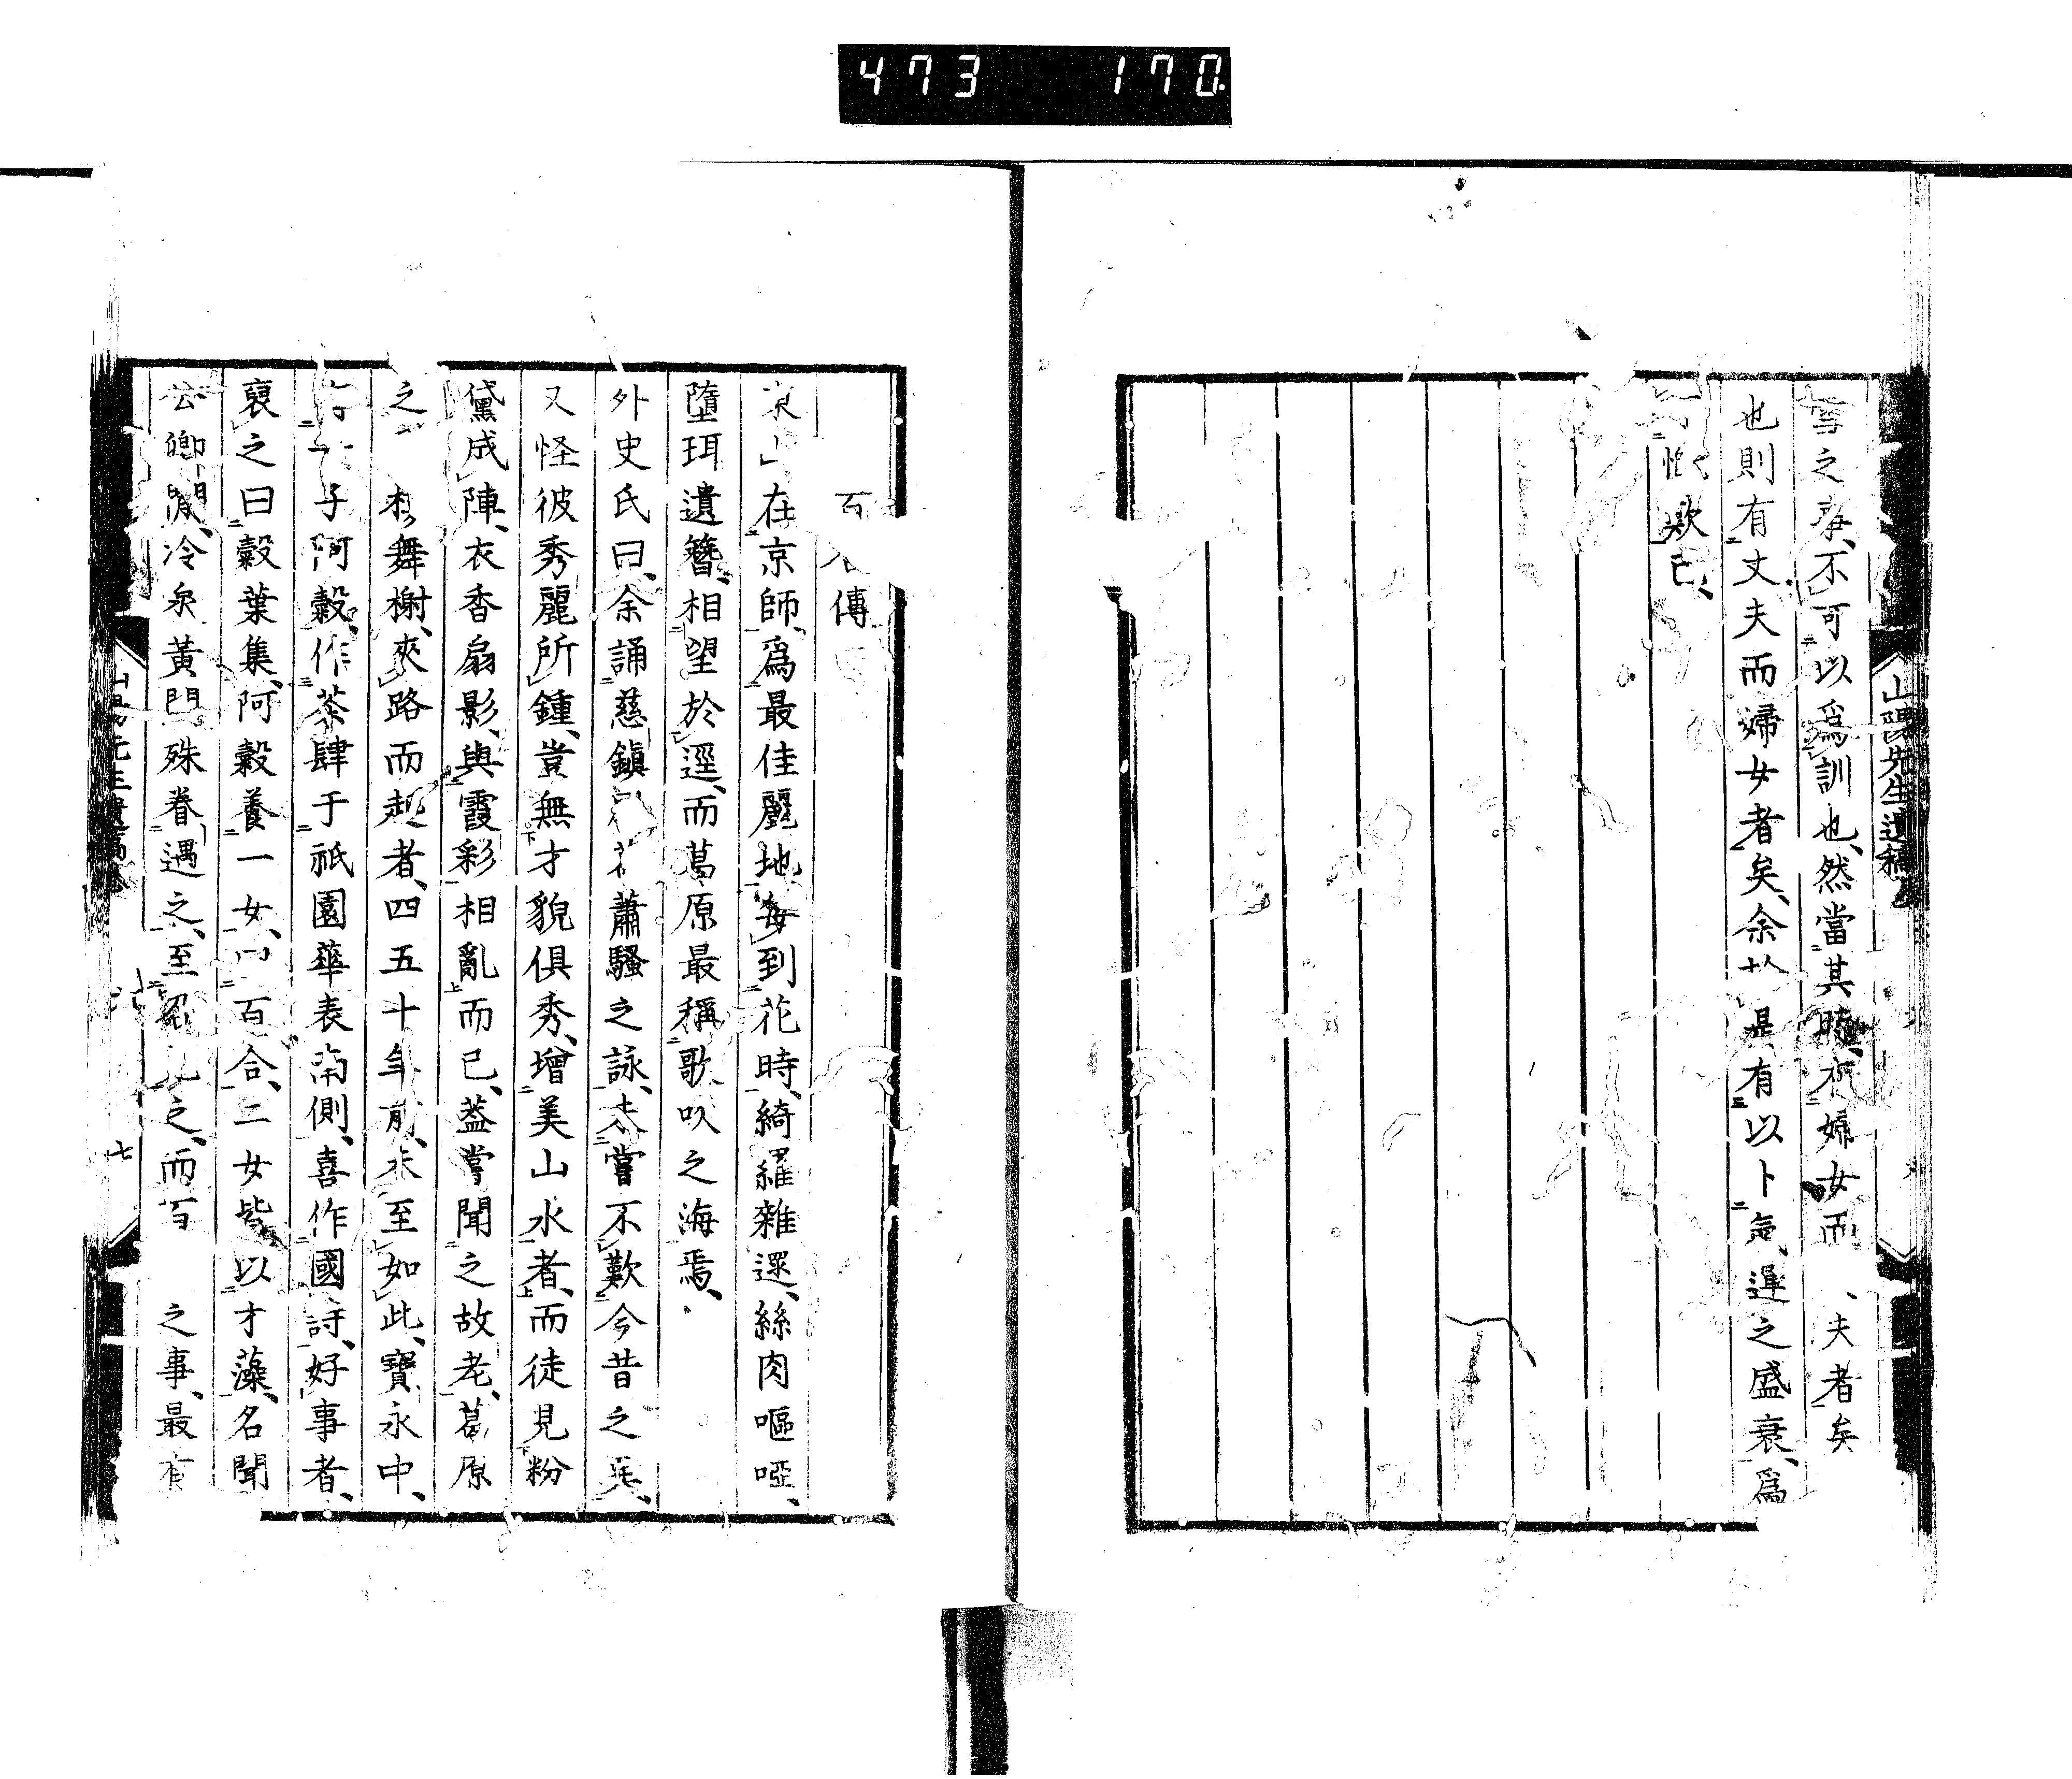 473 170
山陽先生遺稿
之事、不可以爲訓也、然當其時、婦女而夫者矣
也則有丈夫而婦女者矣、余於是有以卜氣運之盛衰、爲
慨歎已、
百合傳
東山在京師、爲最佳麗地、每到花時、綺羅雜遝、絲肉嘔啞、
墮珥遺簪、相望於逕、而葛原最稱歌吹之海焉、
外史氏曰、余誦慈鎭蕭騷之詠、未嘗不歎今昔之異、
又怪彼秀麗所鍾、豈無才貌俱秀、增美山水者、而徒見粉
黛成陣、衣香扇影、與霞彩相亂而已、蓋嘗聞之故老、葛原
之舞榭、夾路而起者、四五十年前、未至如此、寶永中、
有子阿穀、作茶肆于祇園華表南側、喜作國詩、好事者、
裒之曰穀葉集、阿穀養一女、曰百合、二女皆以才藻、名聞
公卿間、冷泉黃門、殊眷遇之、至之、而百之事、最有
山陽先生遺稿
七